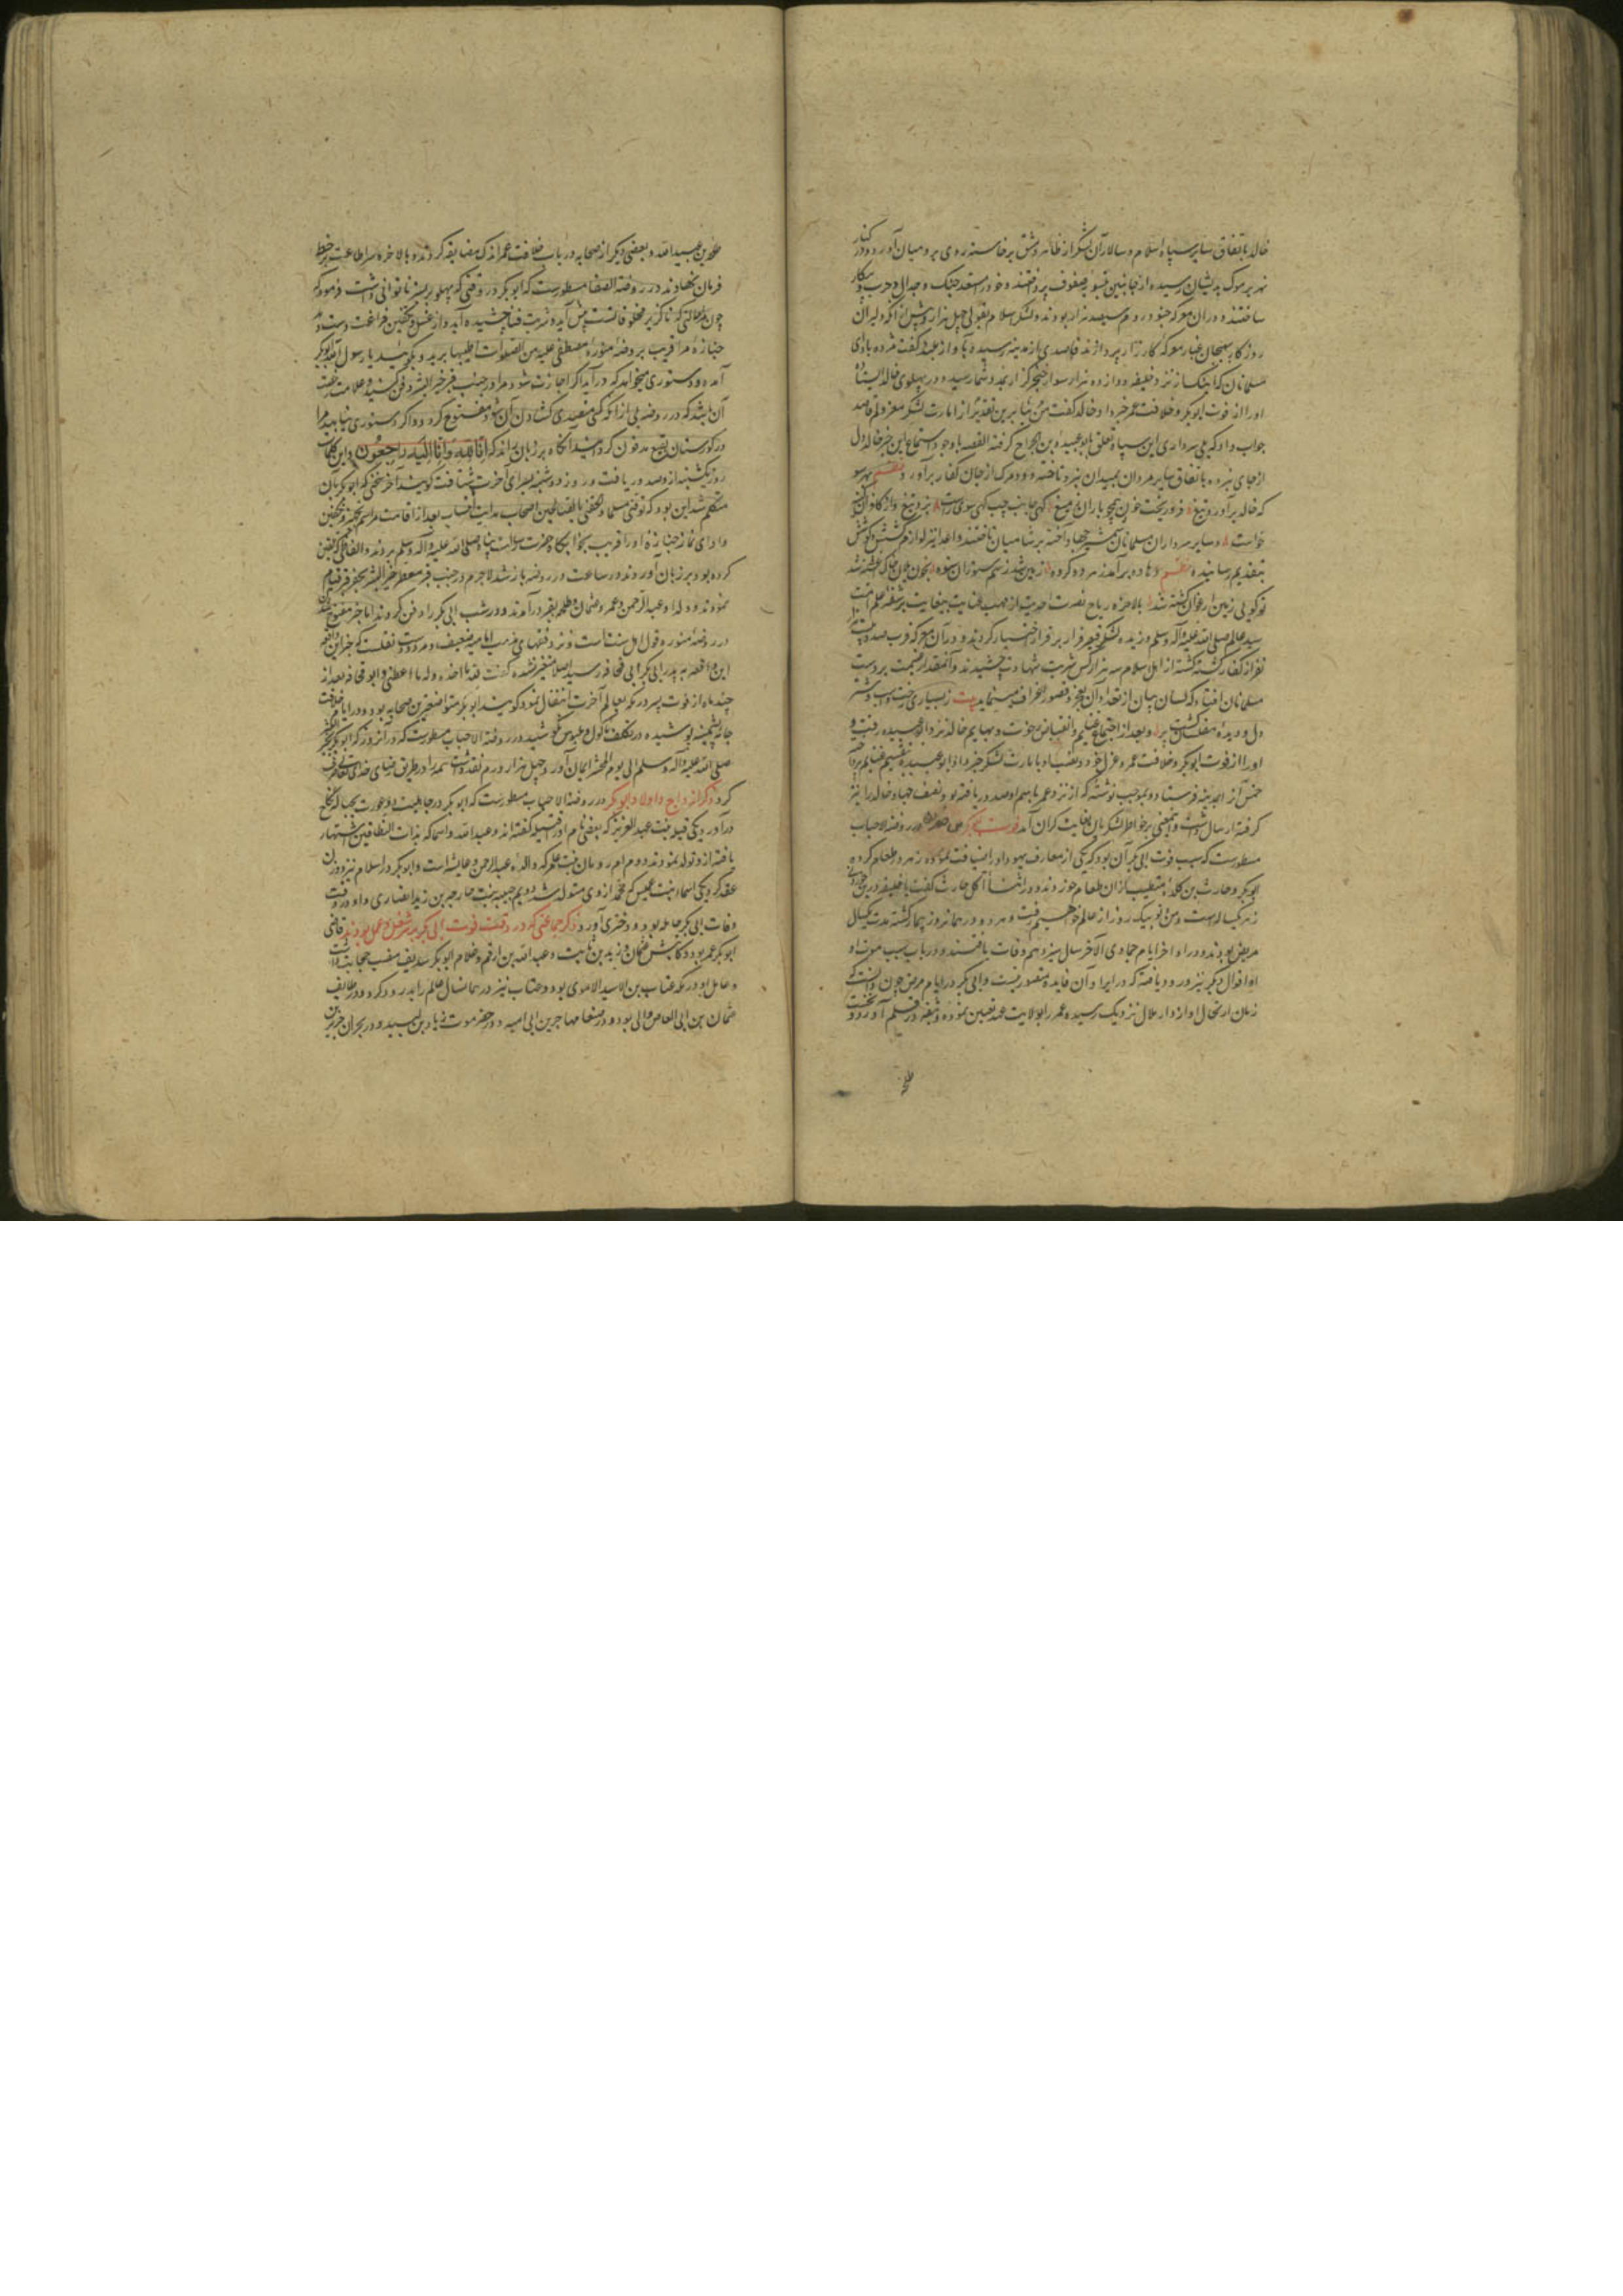 خالد باتفاق سایر سپاه اسلام و سالاران لشکر از ظاهر دمشق برخاسته روی بر و میان آورد و در کنار
نهر یرموک بدیشان رسیده از جانبین
ساختند و در آن معرکه جنود روم سیصد هزار بودند و لشکر اسلام بقولی چهل هزار پیش از آنکه دلیران
روزگار بهیجان غبار معرکه کارزار پردازند قاصدی از مدینه رسیده
مسلمانان که اینک از نزد خلیفه دوازده هزار سوار خنجر گزار
او را از فوت ابوبکر و خلافت عمر خبر داد خالد گفت من بنابرین تقدیر از امارت لشکر معزولم قاصد
جواب داد که بلی سرداری این سپاه تعلق بابو عبیده بن الجراح گرفته القصه باوجود استماع این خبر خالد دل
از جای نبرده باتفاق سایر مردان بمیدان نبرد تاخته و دود مرک از جان کفار برآورد نظم بهر سو
که خالد برآورد تیغ فرو ریخت خون همچو باران ز میغ گهی جانب چپ گهی سوی راست بزد تیغ
خواست و سایر سرداران مسلمانان شمشیرها آخته بر شامیان تاختند و لوازم کشش و کوشش
بتقدیم رسانیده نظم
تو گویی زمین ارغوان کشته شد بالاخره ریاح نصرت احدیت از مهب عنایت بیغایت بر شقه علم امت
سید عالم صلی الله علیه و آله وسلم وزیده لشکر قیصر فرار بر قرار اختیار کردند و در آن معرکه قرب صد و بیست
نفر از کفار کشته گشته از اهل اسلام سه هزار کس شربت شهادت چشیدند و آنمقدار غنیمت بدست
مسلمانان افتاد که لسان بیان از تعداد آن بعجز و قصور اعتراف مینماید بیت ز بسیاری رخت و اسب و شتر
دل و دیده مفلسان گشت پر و بعد از اجتماع غنایم
او را از فوت ابوبکر و خلافت عمر و عزل خود و نصب او بامارت لشکر خبر داد و ابو عبیده بتقسیم غنایم پرداخته
خمس آنرا بمدینه فرستاد و بموجب نوشته که از نزد عمر باسم او صدور یافته بود نصف جهات خالد را نیز
گرفته ارسال داشت و اینمعنی بر خواطر لشکریان بغایت گران آمد در روضه الاحباب
مسطورست که سبب فوت ابی بکر آن بود که یکی از معارف یهود او را ضیافت نموده زهر در طعام کرده
ابوبکر و حارث بن کلده متطبب از آن طعام خوردند و در اثناء اکل حارث گفت یا خلیفه درین خوردنی
زهر یکساله است و من و تو بیک روز از عالم خواهیم رفت و هر دو در همانروز بیمار گشته مدت یکسال
مریض بودند و در اواخر ایام جمادی الآخر سال سیزدهم وفات یافتند و در باب سبب موت او
اقوال دیگر نیز ورود یافته که در ایراد آن فایده متصور نیست و ابی بکر در ایام مرض چون دانست که
زمان ارتحال او از دار ملال نزدیک رسیده عمر را بولایت عهد تعیین نموده و شقه در قلم آورد و
طلحه
طلحه بن عبید الله و بعضی دیگر از صحابه در باب خلافت عمر اندک مضایقه کردند و بالاخره سر اطاعت بر خط
فرمان نهادند در روضه الصفا مسطورست که ابوبکر در وقتی که پهلو بر بستر ناتوانی داشت فرمود که
چون حالتی که ناگزیر مخلوقاتست پیش آید و شربت فنا چشیده آید و از غسل و تکفین فراغت دست دهد
جنازه مرا قریب بروضه منوره مصطفی علیه من الصلوات اطیبها برید و بگویید یا رسول الله ابوبکر
آمده و دستوری میخواهد که درآید اگر اجازت شود مرا در جنب قبر خیر البشر دفن کنید و علامت رخصت
آن باشد که در روضه بی از آنکه کسی متصدی گشادن آن شود مفتوح گردد و اگر دستوری نیابید مرا
در گورستان بقیع مدفون گردانید آنگاه بر زبان راند که انا لله و انا الیه راجعون و این کلمات
روز یکشنبه ازو صدور یافت و روز دوشنبه بسرای آخرت شتافت گویند آخر سخنی که ابوبکر بآن
متکلم شد این بود که توفنی مسلما و الحقنی بالصالحین اصحاب هدایت انتساب بعد از اقامت مراسم تجهیز و تکفین
و ادای نماز جنازه او را قریب بخوابگاه حضرت رسالت پناه صلی الله علیه و آله وسلم بردند و الفاظی که تعیین
کرده بود بر زبان آوردند و در ساعت در روضه باز شد لاجرم در جنب قبر معطر خیر البشر بحفر قبر قیام
نمودند و ولد او عبد الرحمن و عمر و عثمان و طلحه بقبر درآمدند و در شب ابی بکر را دفن کردند اما خبر مفتوح شدن
در روضه منوره قول اهل سنت است و نزد فقهای مذهب امامیه ضعیف و مردود است نقلست که چون
این واقعه به پدر ابی بکر ابی قحافه رسید اصلا متغیر نشده گفت لله ما اخذ و له ما اعطی و ابو قحافه بعد از
چند ماه از فوت پسر در مکه بعالم آخرت انتقال نمود گویند ابوبکر متواضعترین صحابه بود و در ایام خلافت
جامه پشمینه پوشیده در تکلف ماکول و ملبوس نکوشید در روضه الاحباب مسطورست که در آنروز که ابوبکر
صلی الله علیه و آله وسلم الی یوم المحشر ایمان آورد چهل هزار درم نقد داشت همه را در طریق رضای خدای تعالی صرف
کرد ذکر ازواج و اولاد ابوبکر در روضه الاحباب مسطورست که ابوبکر در جاهلیت دو عورت بحباله نکاح
درآورد یکی قتیله بنت عبد العزیز که بعضی نام او قتیل گفته اند و عبد الله و اسما که بذات النطاقین اشتهار
یافته ازو تولد نمودند دوم ام رومان بنت عامر که والده عبد الرحمن و عایشه است و ابوبکر در اسلام نیز دو زن
عقد کرد یکی اسماء بنت عمیس که محمد از وی متولد شد دویم حبیبه بنت خارجه بن زید انصاری و او در وقت
وفات ابی بکر حامله بود و دختری آورد ذکر جماعتی که در وقت فوت ابی بکر بر شغل و عمل بودند قاضی
ابوبکر عمر بود و کاتبش عثمان و زید بن ثابت و عبد الله بن ارقم و غلام ابوبکر سدیف منصب حجابت داشت
و عامل او در مکه عتاب بن الاسید الاموی بود و عتاب نیز در همانسال عالم را بدرود کرد و در طایف
عثمان بن ابی العاص والی بود و در صنعا مهاجر بن ابی امیه و در حضرموت زیاد بن لبید و در بحرین